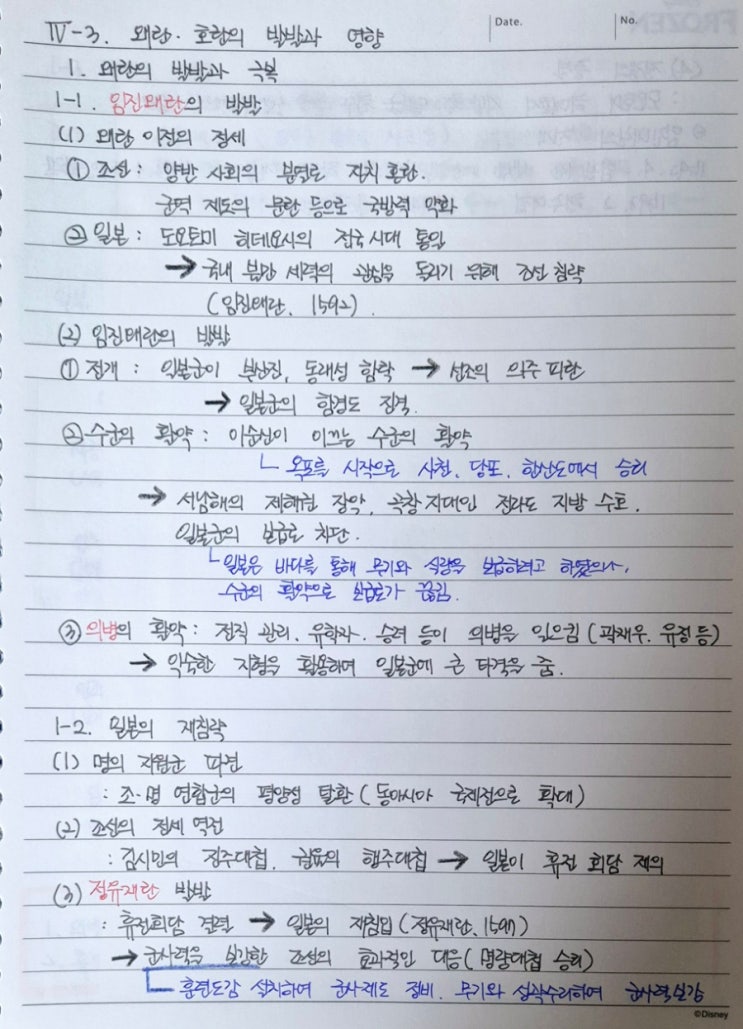 Date.
No.
Ⅳ-3. 왜란·호란의 발발과 영향
1. 왜란의 발발과 극복
1-1. 임진왜란의 발발
(1) 왜란 이전의 정세
① 조선 : 양반 사회의 분열로 정치 혼란.
군역 제도의 문란 등으로 국방력 약화
② 일본 : 도요토미 히데요시의 전국시대 통일
→ 국내 불만 세력의 관심을 돌리기 위해 조선 침략
(임진왜란, 1592).
(2) 임진왜란의 발발
① 전개 : 일본군이 부산진, 동래성 함락 → 선조의 의주 피란
→ 일본군의 함경도 진격.
② 수군의 활약 : 이순신이 이끄는 수군의 활약
└ 옥포를 시작으로 사천, 당포, 한산도에서 승리
→ 서남해의 제해권 장악, 곡창지대인 전라도 지방 수호.
일본군의 보급로 차단.
└ 일본은 바다를 통해 무기와 식량을 보급하려고 하였으나,
수군의 활약으로 보급로가 끊김.
③ 의병의 활약 : 전직 관리, 유학자, 승려 등이 의병을 일으킴 (곽재우, 유정 등)
→ 익숙한 지형을 활용하여 일본군에 큰 타격을 줌.
1-2. 일본의 재침략
(1) 명의 지원군 파견
: 조·명 연합군의 평양성 탈환 (동아시아 국제전으로 확대)
(2) 조선의 전세 역전
: 김시민의 진주대첩, 권율의 행주대첩 → 일본이 휴전 회담 제의
(3) 정유재란 발발
: 휴전회담 결렬 → 일본의 재침입 (정유재란, 1597)
→ 군사력을 보강한 조선의 효과적인 대응 (명량대첩 승리)
└ 훈련도감 설치하여 군사제도 정비, 무기와 성곽수리하여 군사력보강
©Disney